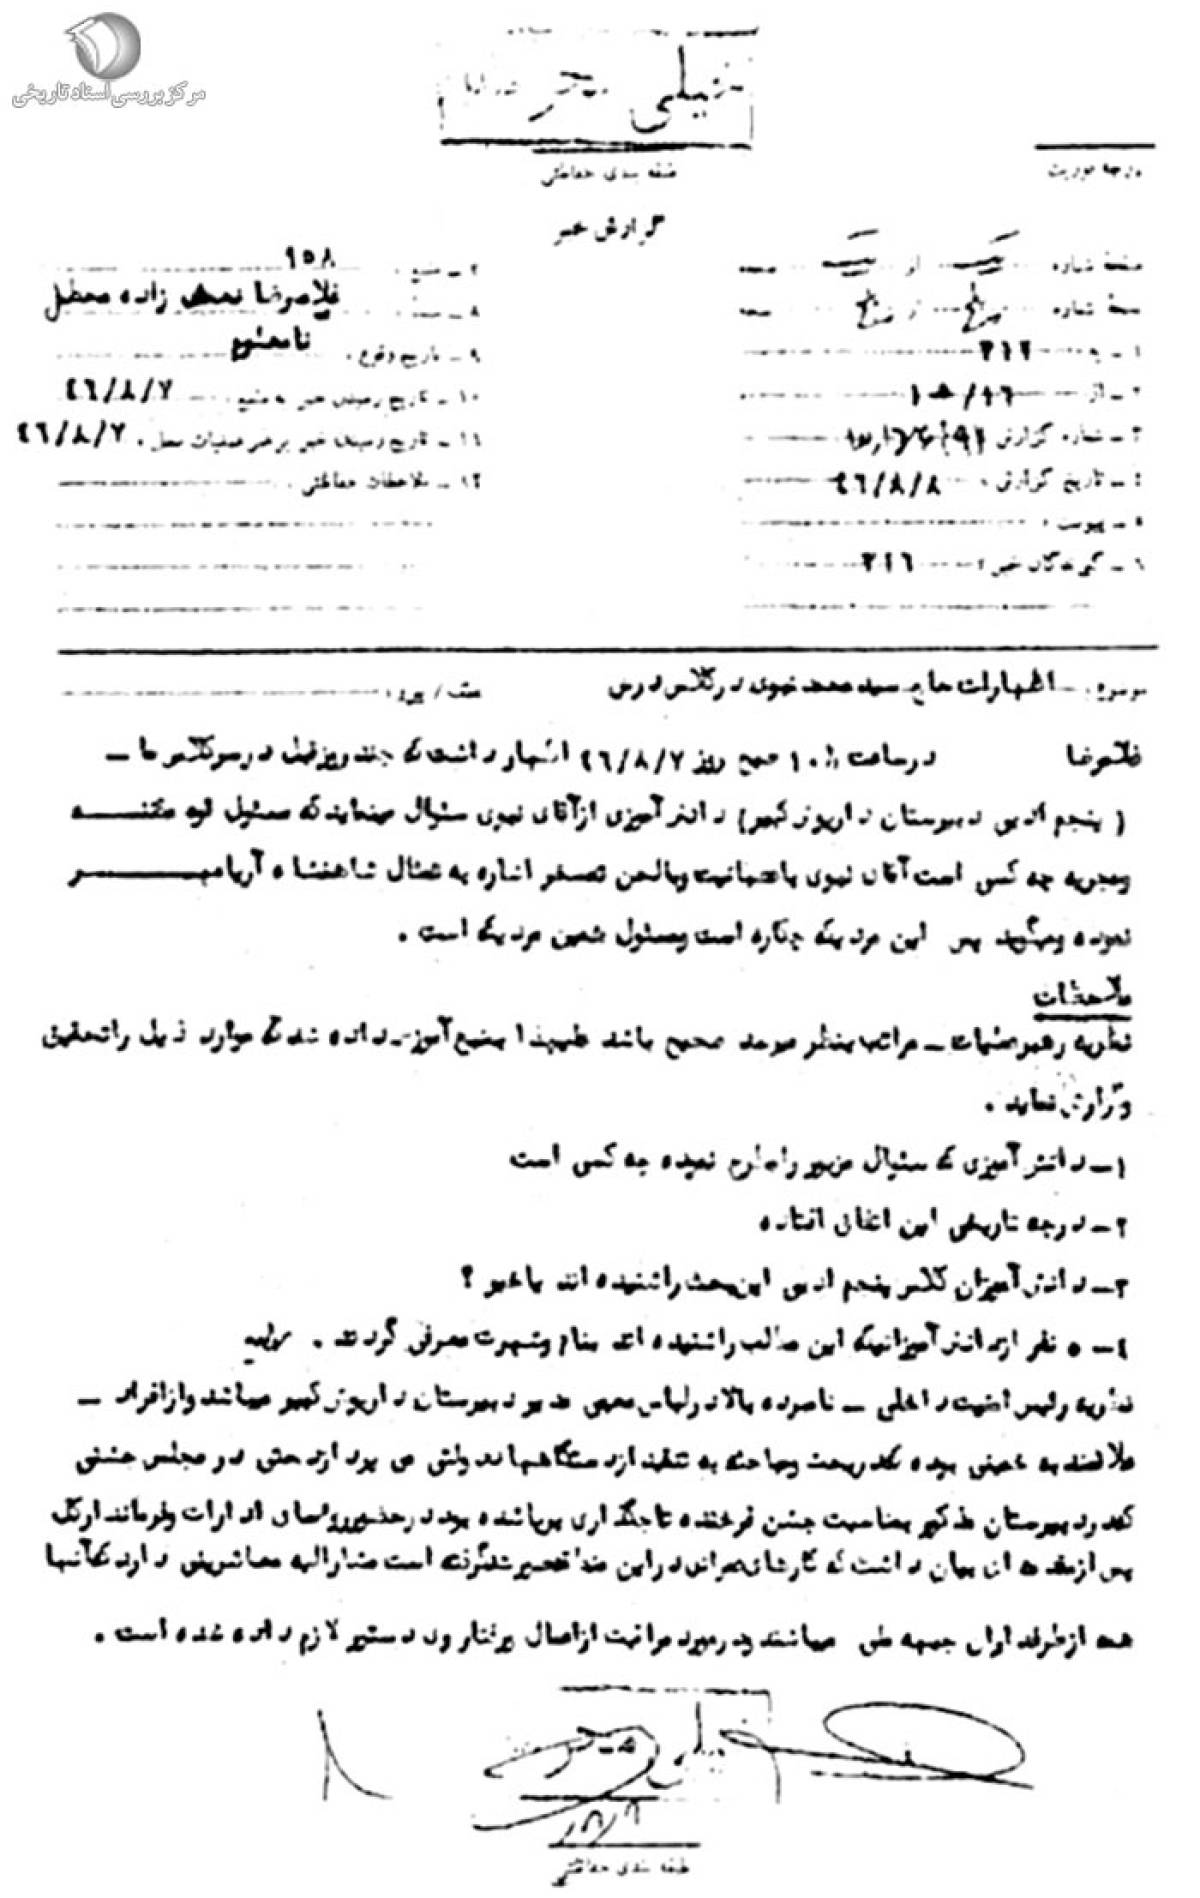 مرکز بررسی اسناد تاریخی
خیلی محرمانه
طبقه بندی حفاظتی
درجه فوریت
گزارش خبر
صفحه شماره یک از یک صفحه
نسخه شماره از نسخه
۱ - به ۳۱۲
۲ - از
۳ - شماره گزارش
۴ - تاریخ گزارش ۴۶/۸/۸
۵ - پیوست
۶ - گیرندگان خبر ۳۱۶
۷ - منبع ۹۵۸
۸ - غلامرضا زاده محصل
۹ - تاریخ وقوع نامعلوم
۱۰ - تاریخ رسیدن خبر به منبع ۴۶/۸/۷
۱۱ - تاریخ رسیدن خبر برهبر عملیات محل ۴۶/۸/۷
۱۲ - ملاحظات حفاظتی
موضوع : اظهارات حاج سید محمد نبوی در کلاس درس
عطف / پیرو :
غلامرضا در ساعت ۱۰ صبح روز ۴۶/۸/۷ اظهار داشت که چند روز قبل در سر کلاس ما ـ
( پنجم ادبی دبیرستان داریوش کبیر ) دانش آموزی از آقای نبوی سئوال مینماید که مسئول قوه مقننه
ومجریه چه کسی است آقای نبوی با عصبانیت وبالحن تمسخر اشاره به تمثال شاهنشاه آریامهر
نموده ومیگوید پس این مردیکه چکاره است ومسئول همین مردیکه است .
ملاحظات
نظریه رهبر عملیات ـ مراتب بنظر میرسد صحیح باشد علیهذا بمنبع آموزش داده شد که موارد ذیل را تحقیق
وگزارش نماید .
۱ـ دانش آموزی که سئوال مزبور را طرح نموده چه کسی است
۲ـ در چه تاریخی این اتفاق افتاده
۳ـ دانش آموزان کلاس پنجم ادبی این بحث را شنیده اند یا خیر ؟
۴ـ ۵ نفر از دانش آموزانیکه این مطالب را شنیده اند بنام وشهرت معرفی گردند .
نظریه رئیس امنیت داخلی ـ نامبرده بالا در لباس معمم دبیر دبیرستان داریوش کبیر میباشد واز افراد ـ
علاقمند به خمینی بوده که در بحث ومباحثه به تنقید از دستگاههای دولتی می پردازد حتی در مجلس جشنی
که در دبیرستان مذکور بمناسبت جشن فرخنده تاجگذاری برپا شده بود در حضور روسای ادارات وفرماندارکل
پس از مقدمه ای بیان داشت که کارشایان در این تعمیر شده گرفته است مشارالیه معاشرینی دارد که آنها
همه از طرفداران جبهه ملی میباشند ودر مورد مراقبت از اعمال ورفتار وی دستور لازم داده شده است .
خیلی محرمانه
۸/۸
طبقه بندی حفاظتی